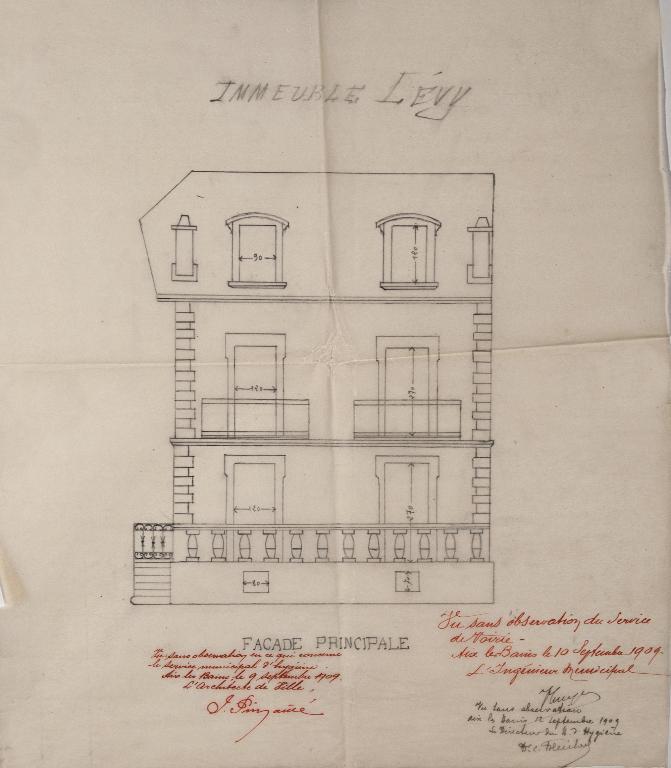 IMMEUBLE LÉVY
90
120
120
270
120
270
80
FAÇADE PRINCIPALE
Vu sans observation en ce qui concerne
le service municipal d'hygiène.
Aix les Bains le 9 septembre 1909.
L'Architecte de Ville,
Vu sans observation du Service
de Voirie -
Aix les Bains le 10 Septembre 1909.
L'Ingénieur Municipal
Vu sans observation
aix les Bains, 12 septembre 1909
Le Directeur du B. d'Hygiène